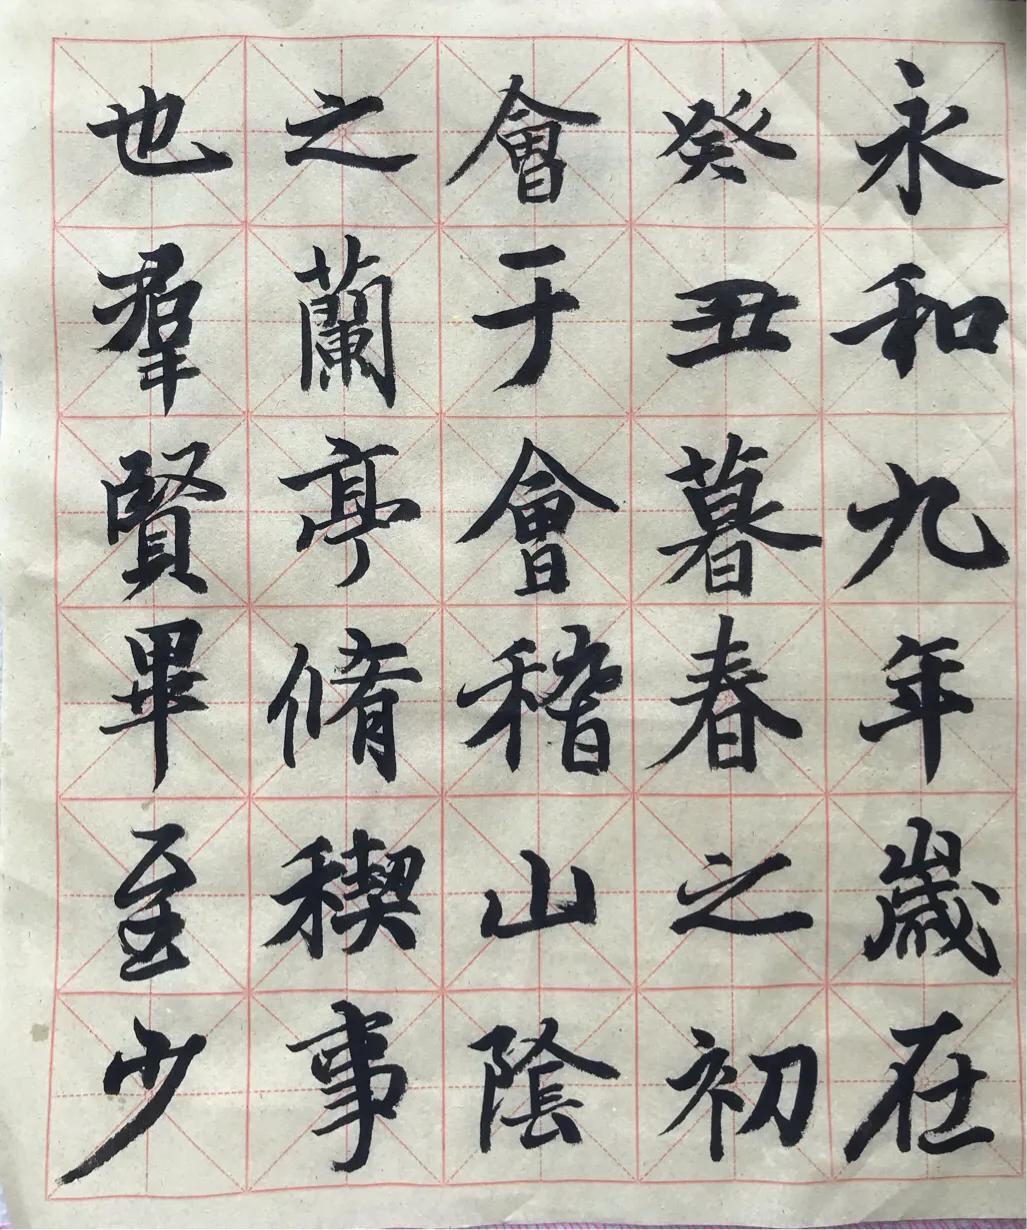 永和九年歲在
癸丑暮春之初
會于會稽山陰
之蘭亭脩稧事
也羣賢畢至少